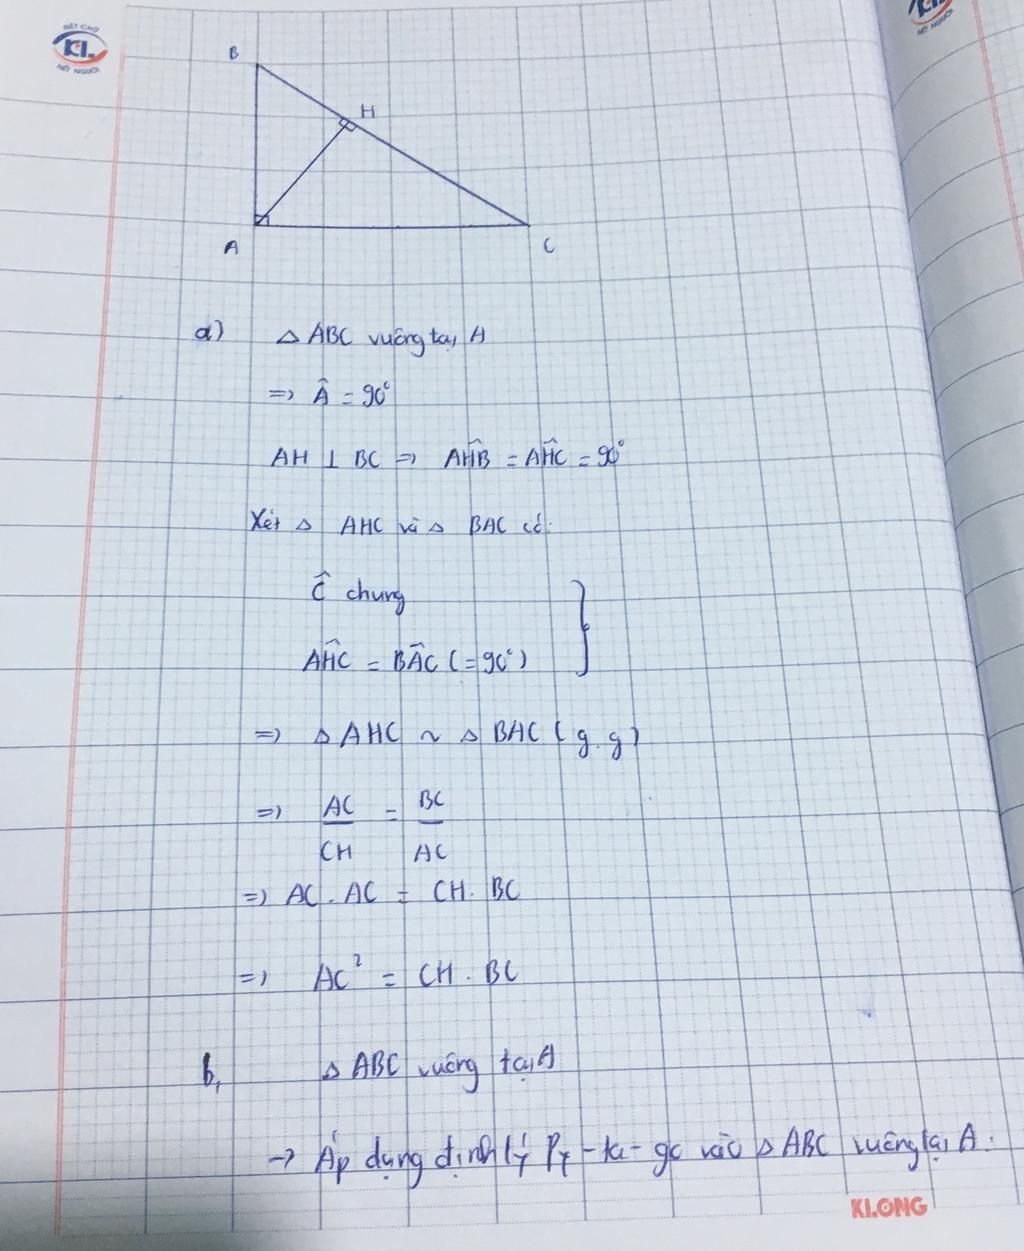 NÉT CHỮ
KL
NẾT NGƯỜI
KL
NẾT NGƯỜI
B
H
A
C
a) △ ABC vuông tại A
=> Â = 90°
AH ⊥ BC => AĤB = AĤC = 90°
Xét △ AHC và △ BAC có:
Ĉ chung
AĤC = BÂC (= 90°)
=> △ AHC ~ △ BAC (g.g)
=> AC/CH = BC/AC
=> AC . AC = CH . BC
=> AC² = CH . BC
b, △ ABC vuông tại A
-> Áp dụng định lý Py-ta-go vào △ ABC vuông tại A:
KLONG